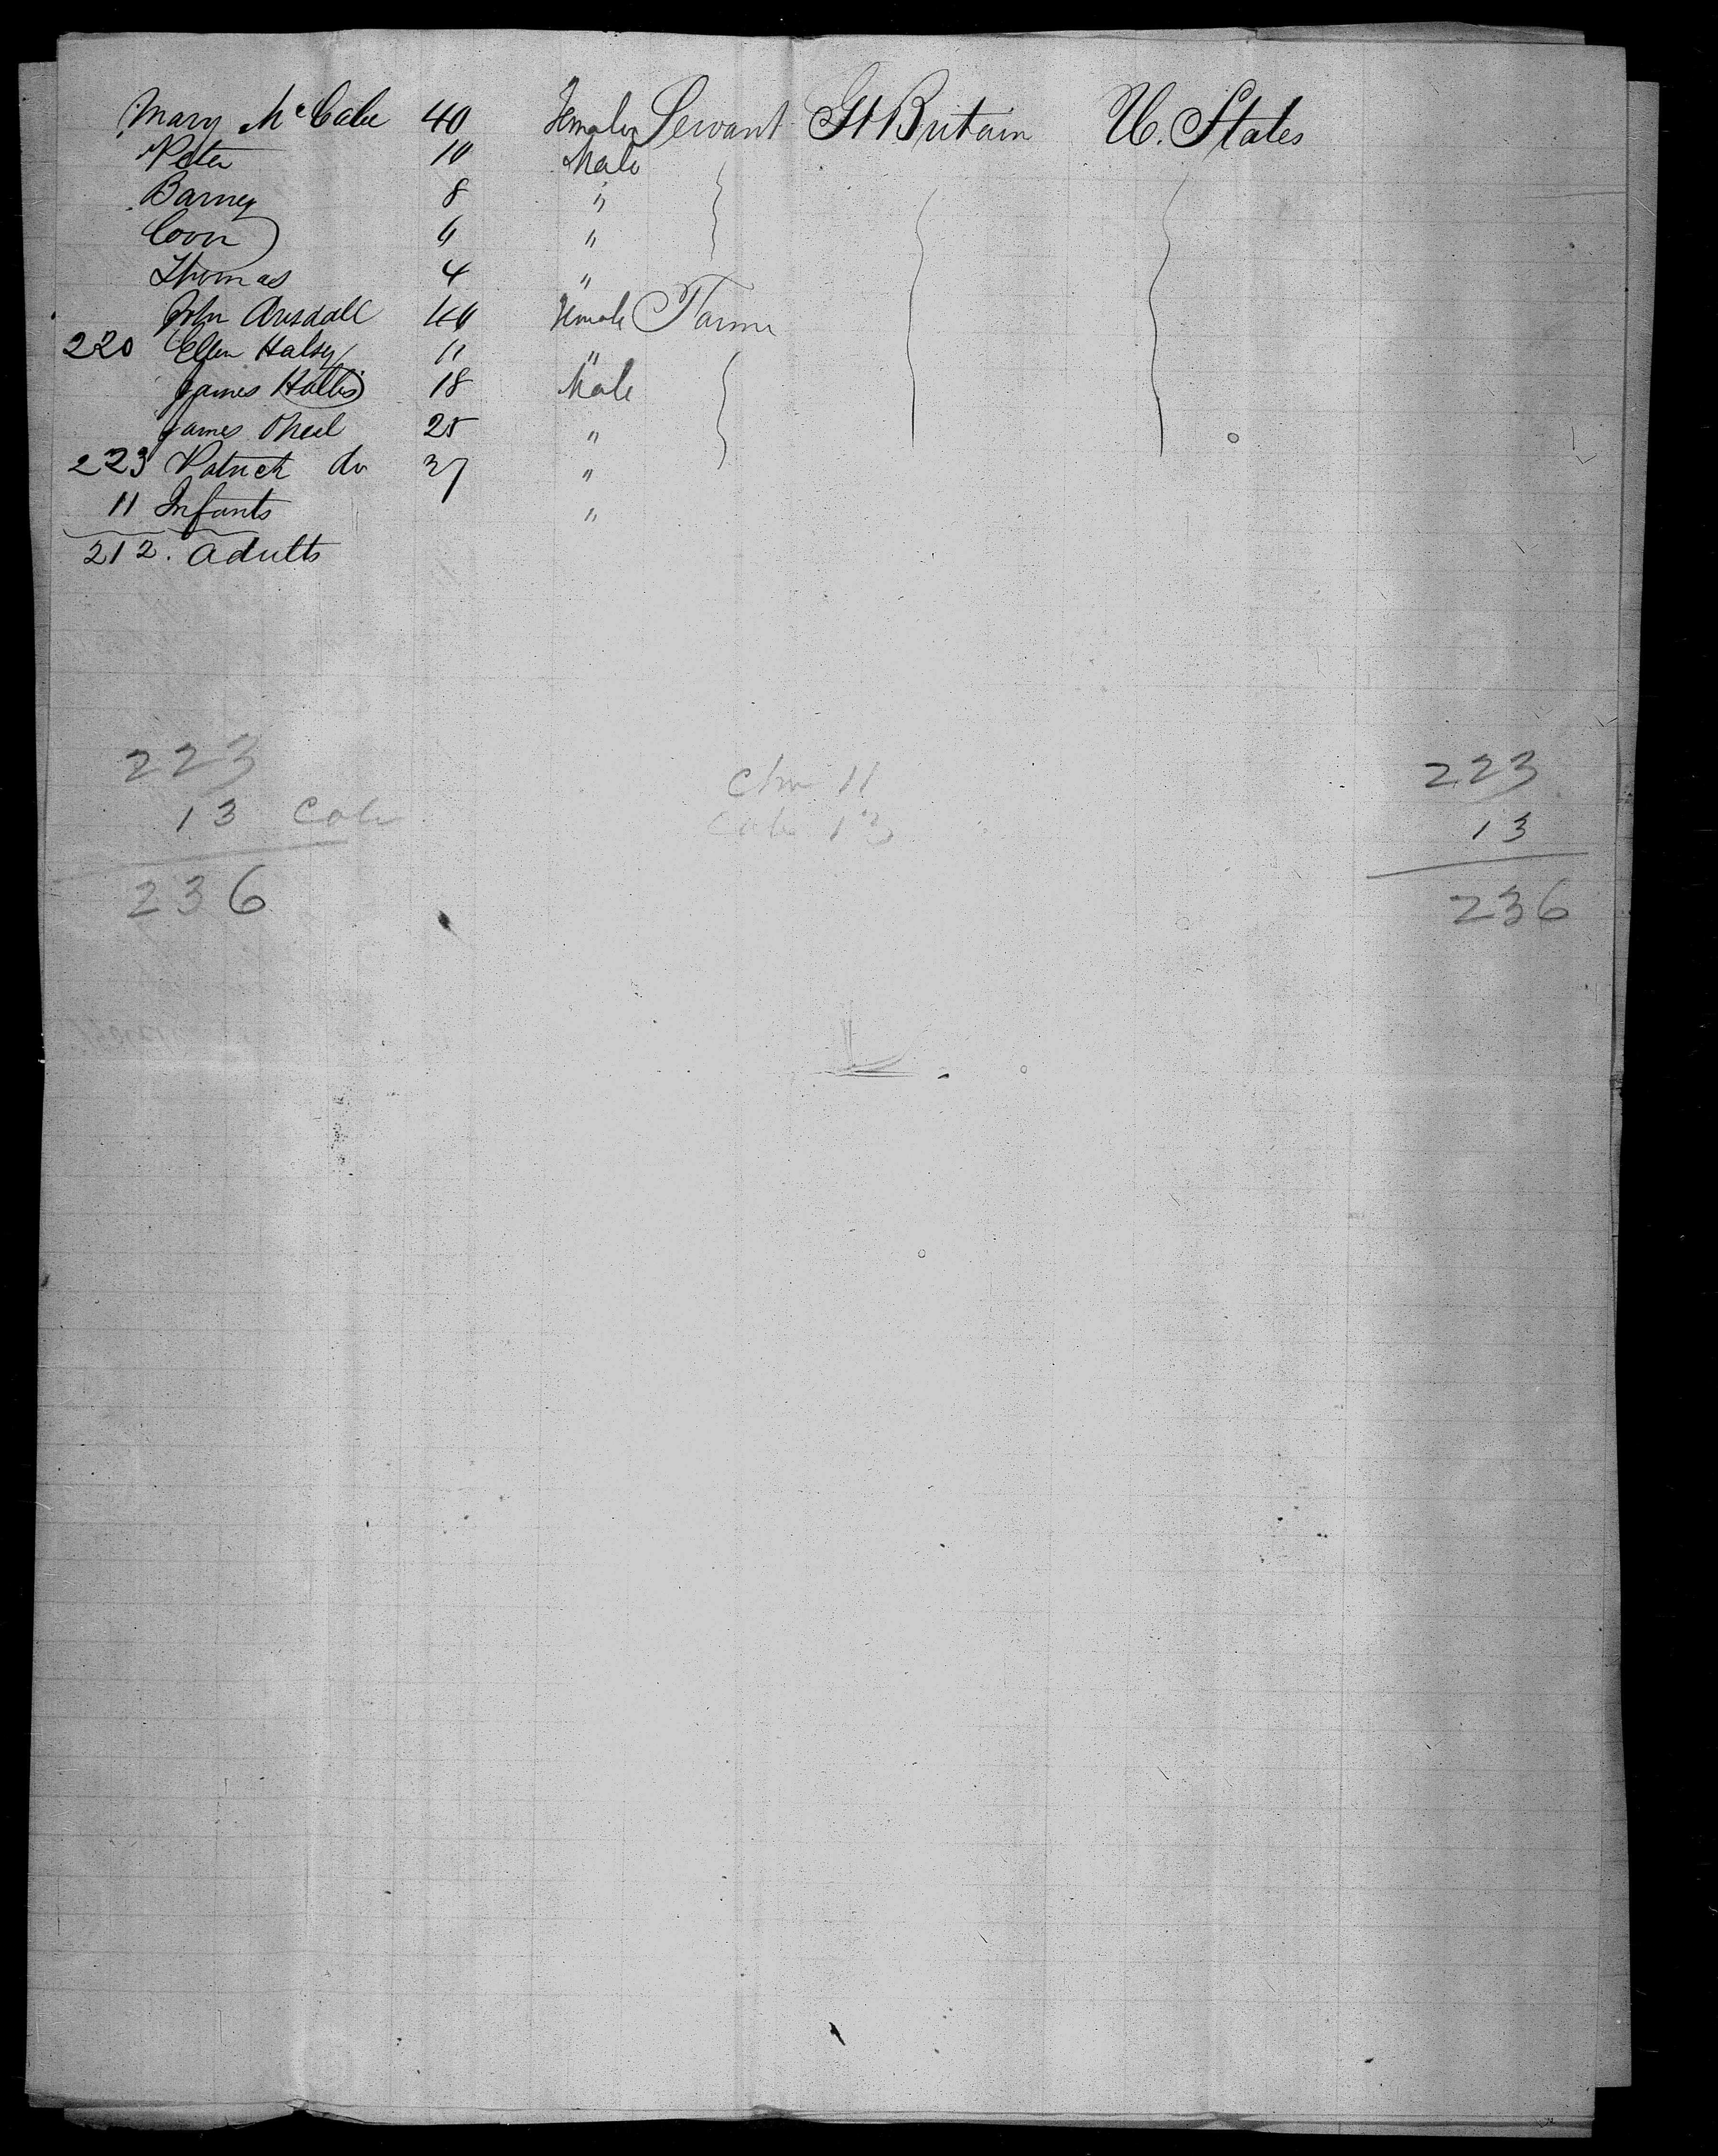 Mary McCabe 40 Female Servant Gt Britain U. States
Peter 10 Male
Barney 8 "
Coon 6 "
Thomas 4 "
John 44 Female Farmer
220 Ellen Halsey 11 "
James 18 Male
James Oneil 25 "
223 Patrick do 27 "
11 Infants "
212. Adults
223
13 Cab
236
Chn 11
Cab 13
223
13
236